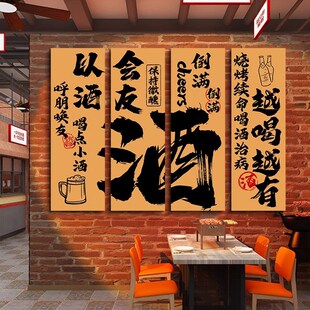 以酒
呼朋唤友
喝点小酒
会友
保持微醺
酒
倒满
cheers
倒满
烧烤续命喝酒治病
越喝越有
酒